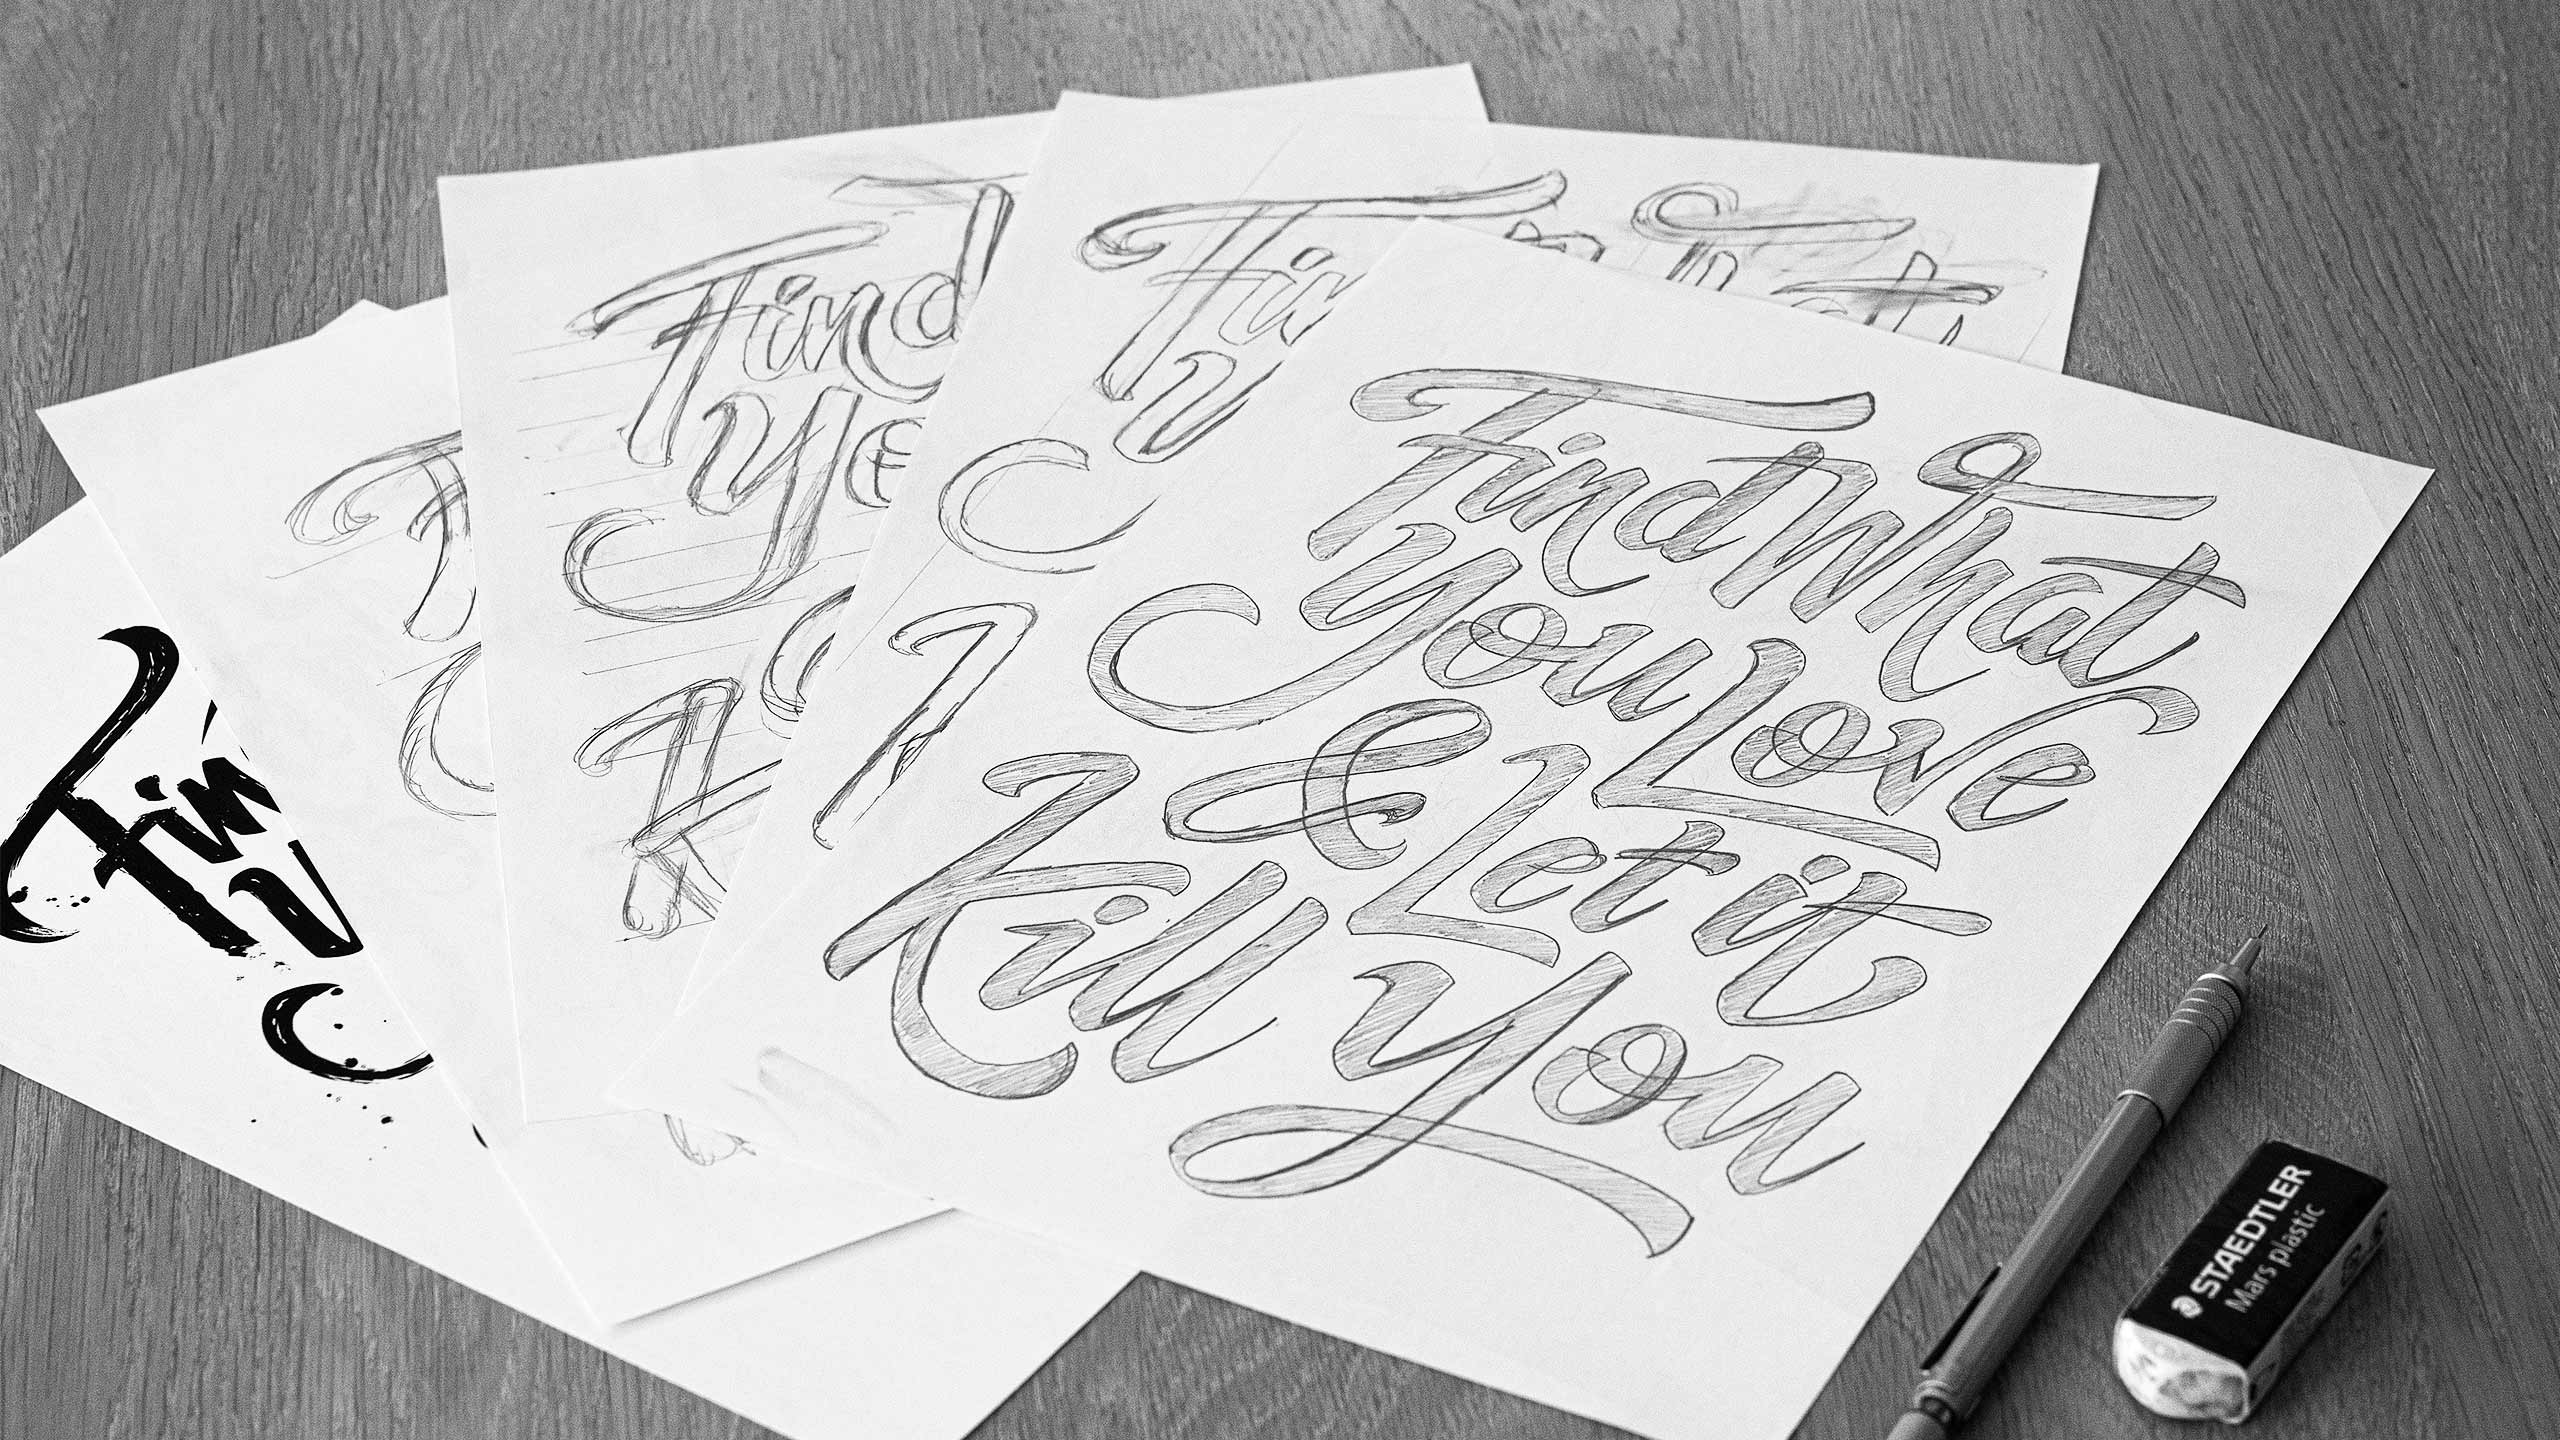 Find What
You Love
& Let it
Kill You
Find
Ye
K
Fin
STAEDTLER
Mars plastic